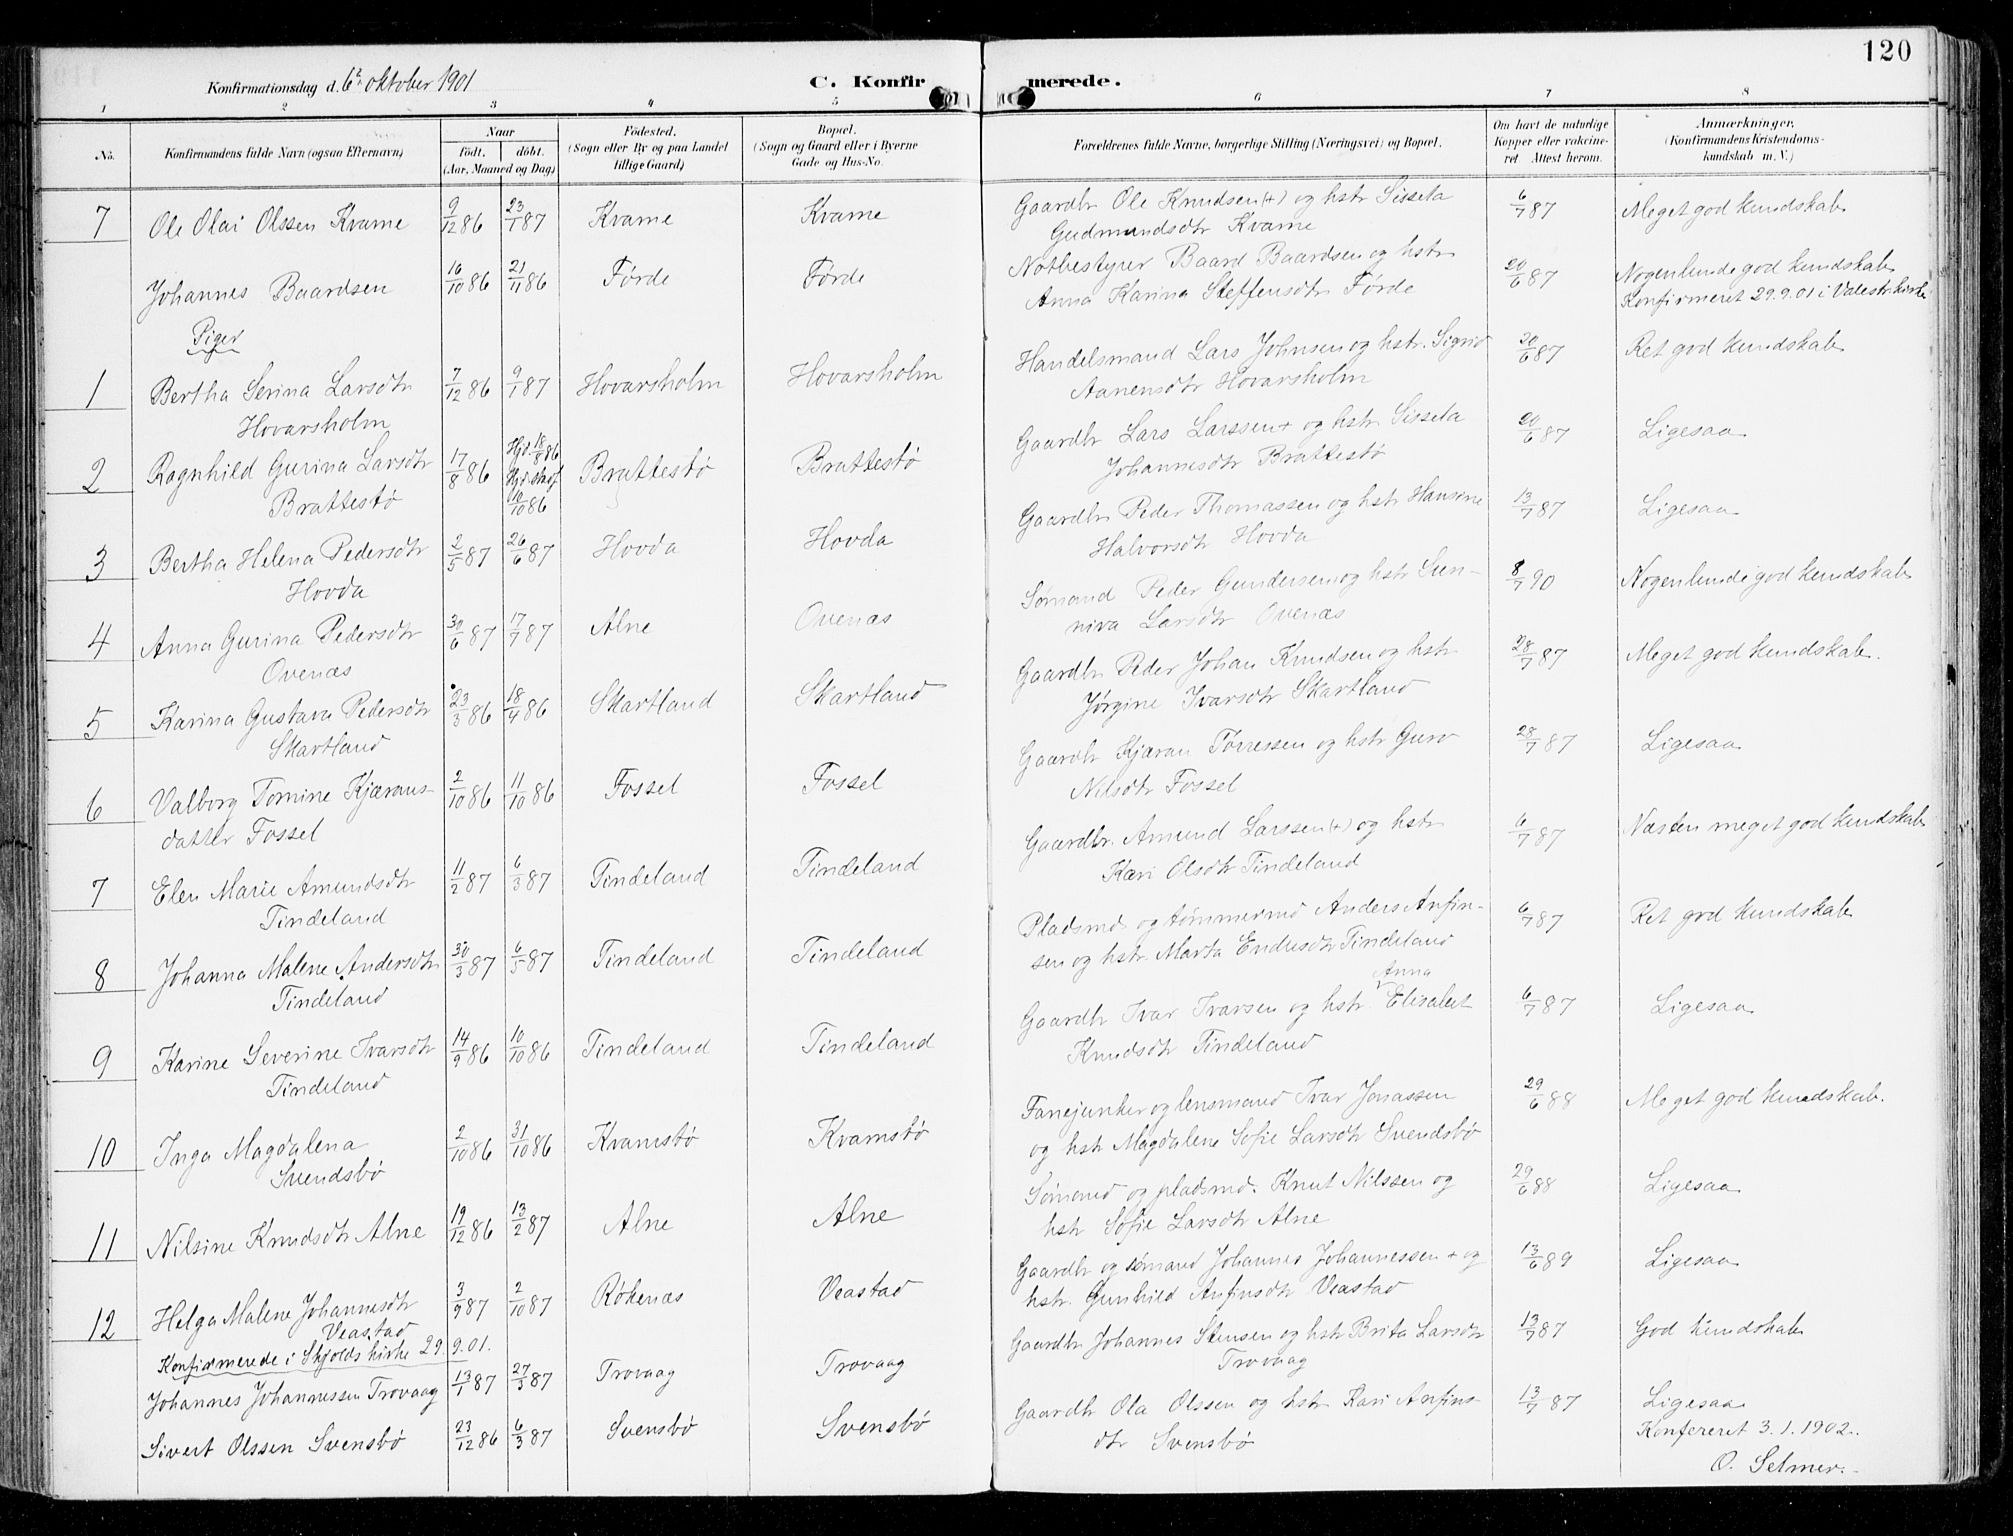 120
Konfirmationsdag d. 6te oktober 1901
C. Konfirmerede.
1 2 3 4 5 6 7 8
No. Konfirmandens fulde Navn (ogsaa Efternavn) Naar født, døbt. (Aar, Maaned og Dag) Fødested. (Sogn eller By og paa Landet tillige Gaard) Bopæl. (Sogn og Gaard eller i Byerne Gade og Hus-No. Forældrenes fulde Navne, borgerlige Stilling (Næringsvei) og Bopæl. Om havt de naturlige Kopper eller vakcineret. Attest herom. Anmærkninger. (Konfirmandens Kristendomskundskab m. V.)
7 Ole Olai Olssen Kvame 9/12 86 23/1 87 Kvame Kvame Gaardbr Ole Knudsen (+) og hstr Sisseta 6/7 87 Meget god kundskab
Gudmundsdtr Kvame
Johannes Baardsen 16/10 86 21/11 86 Førde Førde Notbestyrer Baard Baardsen og hstr 20/6 87 Nogenlunde god kundskab
Anna Karina Steffensdtr Førde Konfirmeret 29.9.01 i Valestr. kirke
Piger
1 Bertha Serina Larsdtr 7/12 86 9/1 87 Hovarsholm Hovarsholm Handelsmand Lars Johnsen og hstr. Sigrid 20/6 87 Ret god kundskab
Hovarsholm Aanensdtr Hovarsholm
2 Ragnhild Gurina Larsdtr 17/8 86 Hjd. 18/8 86 Brattestø Brattestø Gaardbr Lars Larssen + og hstr Sisseta 20/6 87 Ligesaa
Brattestø 10/10 86 Johannesdtr Brattestø
3 Bertha Helena Pedersdtr 2/5 87 26/6 87 Hovda Hovda Gaardbr Peder Thomassen og hstr Hansine 13/7 87 Ligesaa
Hovda Halvorsdtr Hovda
4 Anna Gurina Pedersdtr 30/6 87 17/7 87 Alne Ovenæs Sømand Peder Gundersen og hstr Sun- 8/7 90 Nogenlunde god kundskab
Ovenæs niva Larsdtr Ovenæs
5 Karina Gustava Pedersdtr 23/3 86 18/4 86 Skartland Skartland Gaardbr Peder Johan Knudsen og hstr 28/7 87 Meget god kundskab.
Skartland Jørgine Ivarsdtr Skartland
6 Valborg Tomine Kjærans- 2/10 86 11/10 86 Fossel Fossel Gaardbr Kjæran Tørressen og hstr Guro 28/7 87 Ligesaa
datter Fossel Nilsdtr Fossel
7 Elen Marie Amundsdtr 11/2 87 6/3 87 Tindeland Tindeland Gaardbr. Amund Larssen (+) og hstr 6/7 87 Næsten meget god kundskab
Tindeland Kari Olsdtr Tindeland
8 Johanna Malene Andersdtr 30/3 87 6/5 87 Tindeland Tindeland Pladsmd og tømmermd Anders Anfin- 6/7 87 Ret god kundskab
Tindeland sen og hstr. Marta Endresdtr Tindeland
9 Karine Severine Ivarsdtr 14/9 86 10/10 86 Tindeland Tindeland Gaardbr Ivar Ivarsen og hstr Anna Elisabet 6/7 87 Ligesaa
Tindeland Knudsdtr Tindeland
10 Inga Magdalena 2/10 86 31/10 86 Kvamsbø Kvamsbø Fanejunker og lensmand Ivar Jonassen 29/6 88 Meget god kundskab.
Svendsbø og hstr Magdalene Sofie Larsdtr Svendsbø
11 Nilsine Knudsdtr Alne 19/12 86 13/2 87 Alne Alne Sømand og pladsmd. Knut Nilssen og 29/6 88 Ligesaa
hstr Sofie Larsdtr Alne
12 Helga Malene Johannesdtr 3/9 87 2/10 87 Røkenæs Veastad Gaardbr og sømand Johannes Johannessen + og 13/6 89 Ligesaa
Veastad hstr. Gunhild Anfinsdtr Veastad
Konfirmerede i Skjolds kirke 29.9.01.
Johannes Johannessen Trovaag 13/1 87 27/3 87 Trovaag Trovaag Gaardbr Johannes Stensen og hstr Brita Larsdtr 13/7 87 God kundskab
Trovaag
Sivert Olssen Svensbø 23/12 86 6/3 87 Svensbø Svensbø Gaardbr Ola Olssen og hstr Kari Anfins- 13/7 87 Ligesaa
dtr Svensbø Konfereret 3.1.1902.
O. Selmer.